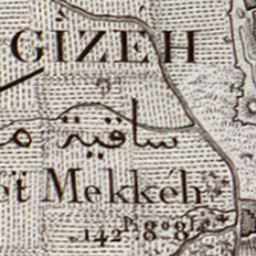 GÎZEH
ساقية م
et Mekkéh
142 8.08